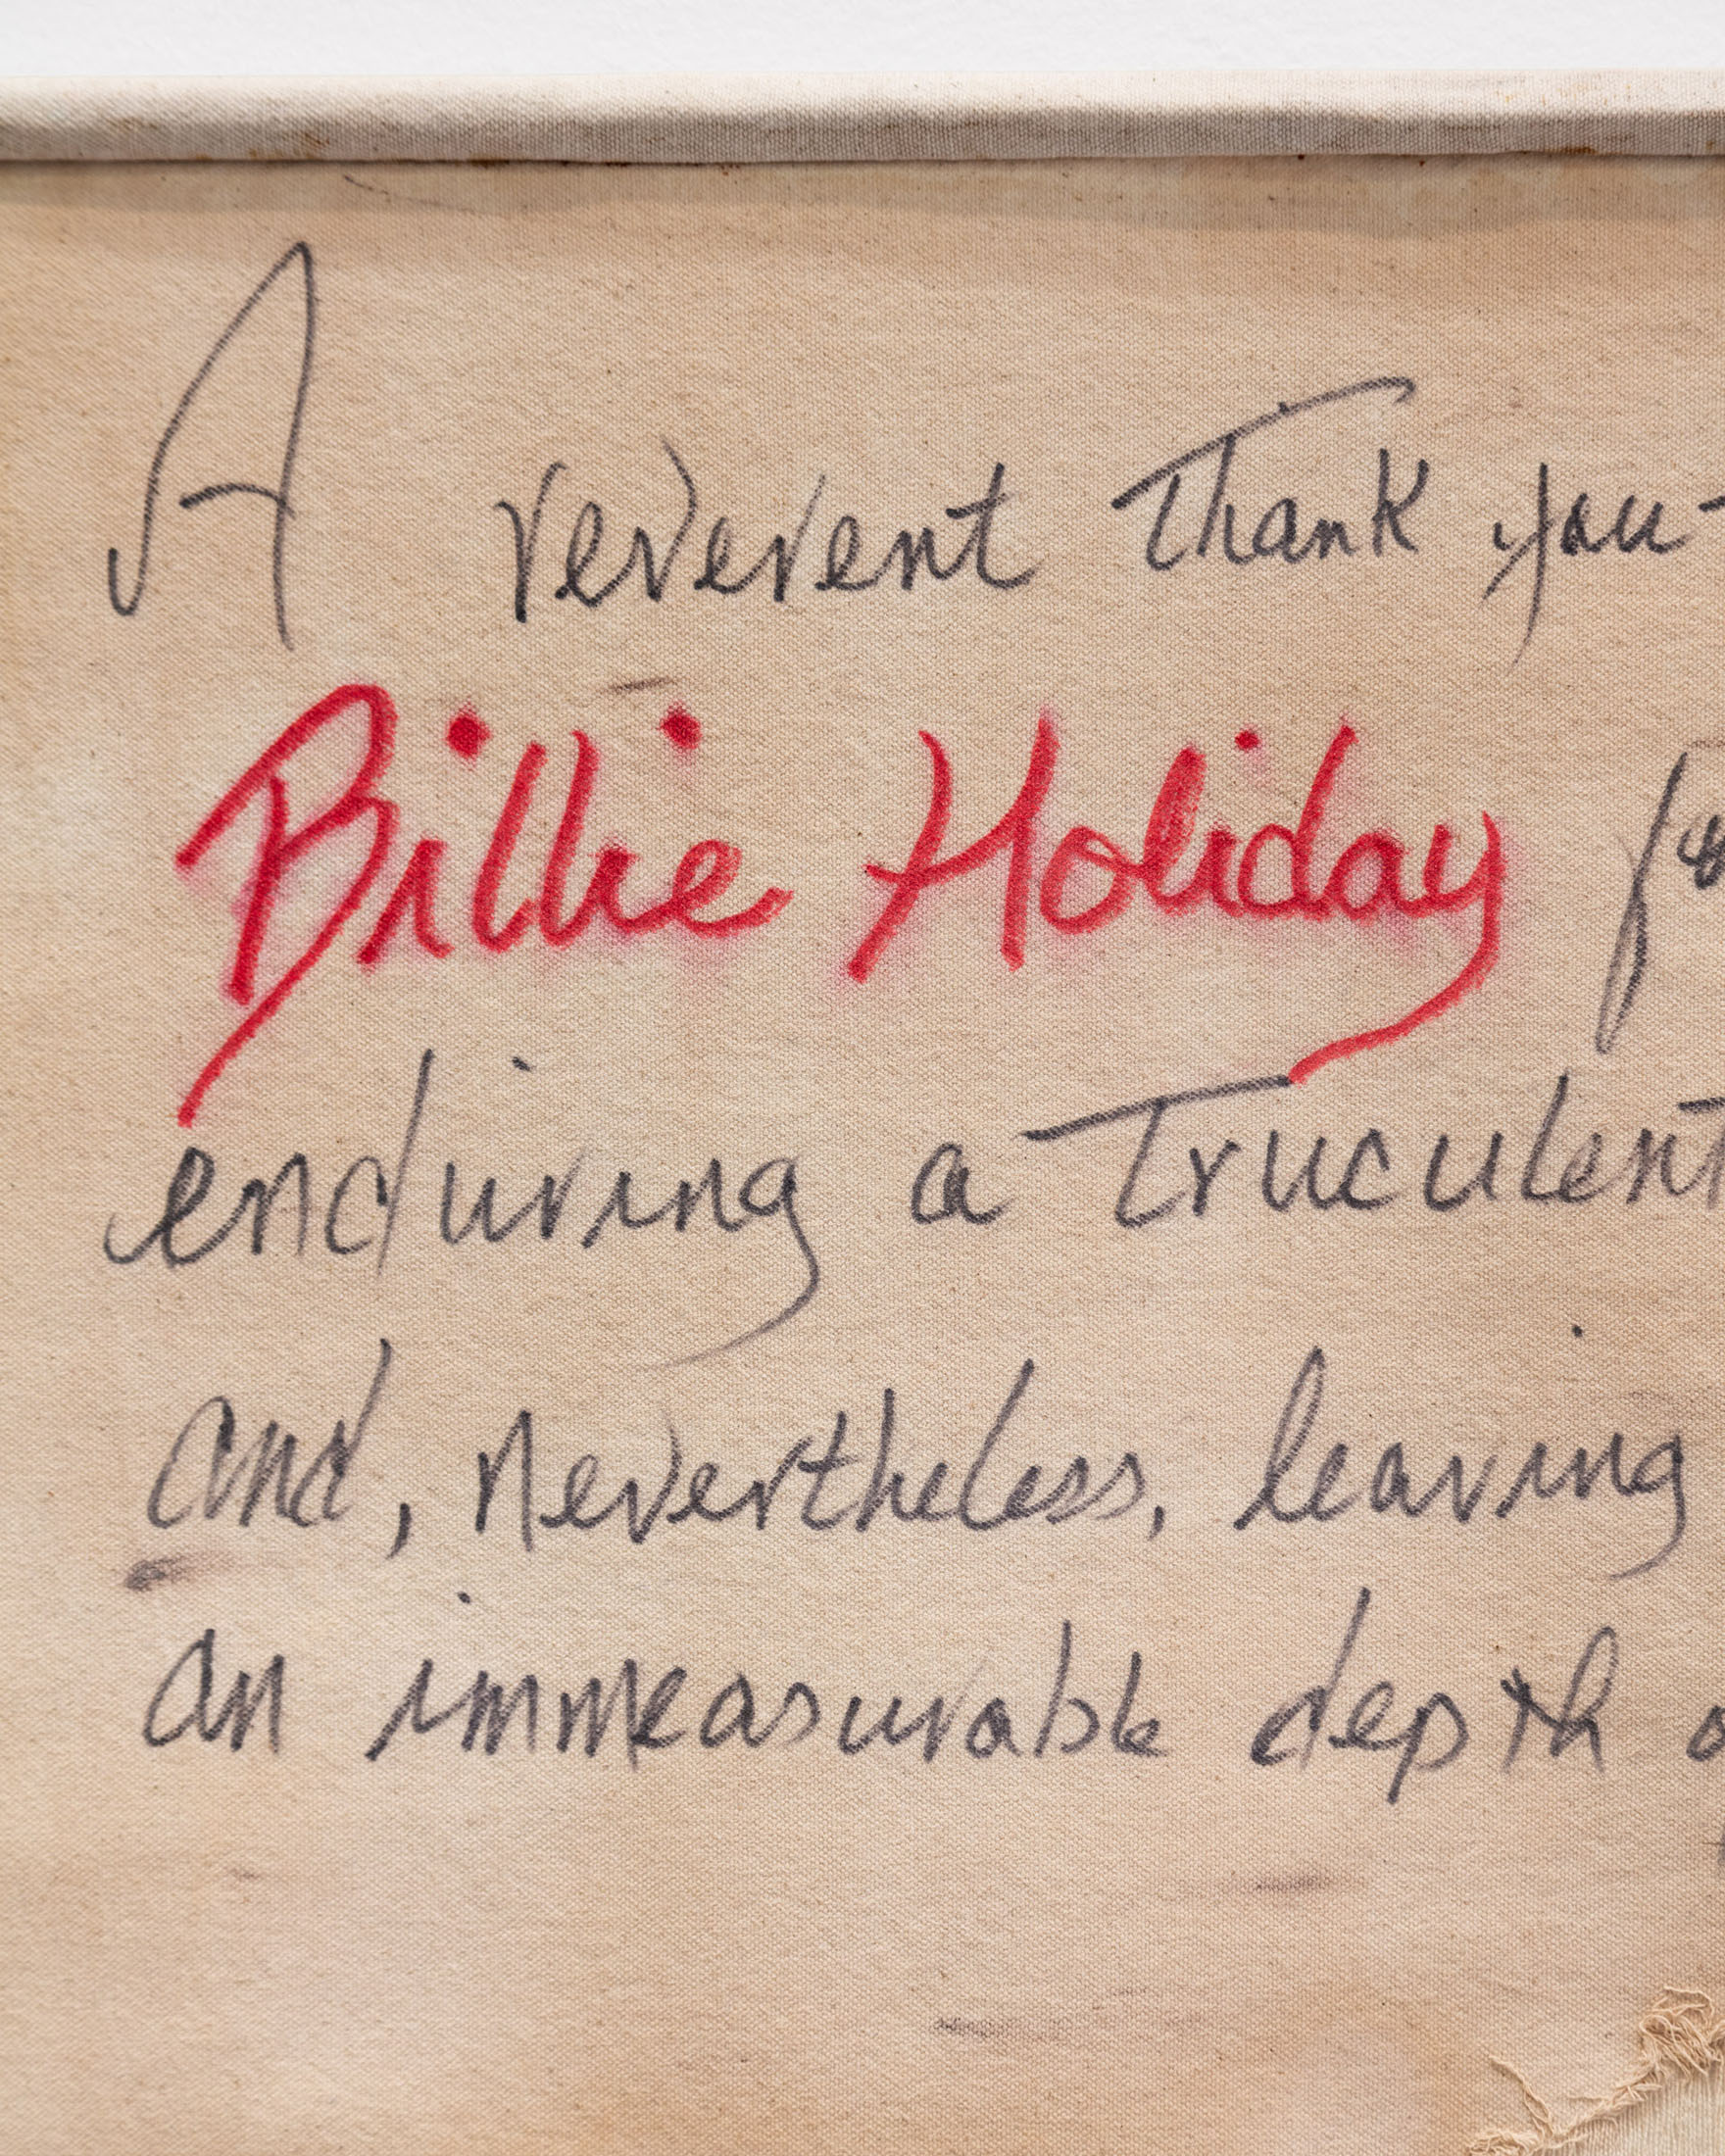 A reverent Thank you-
Billie Holiday
enduring a Truculent
and, nevertheless, leaving
an immeasurable depth